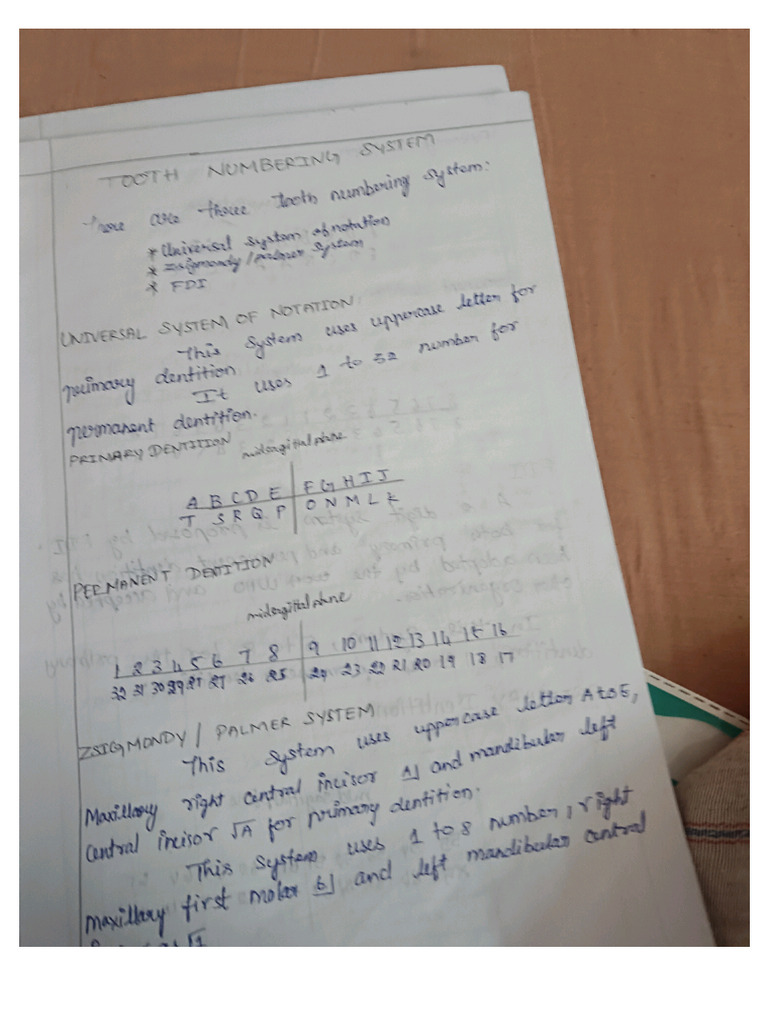 TOOTH NUMBERING SYSTEM
There are three Tooth numbering system:
* Universal system of notation
* Zsigmondy / palmer system
* FDI
UNIVERSAL SYSTEM OF NOTATION
This system uses uppercase letter for
primary dentition It uses 1 to 32 number for
permanent dentition.
PRIMARY DENTITION midsagittal plane
A B C D E F G H I J
T S R Q P O N M L K
PERMANENT DENTITION
midsagittal plane
1 2 3 4 5 6 7 8 9 10 11 12 13 14 15 16
32 31 30 29 28 27 26 25 24 23 22 21 20 19 18 17
ZSIGMONDY / PALMER SYSTEM
This system uses uppercase letter A to E,
Maxillary right central incisor A| and mandibular left
central incisor √A for primary dentition.
This system uses 1 to 8 number, right
maxillary first molar 6| and left mandibular central
√1